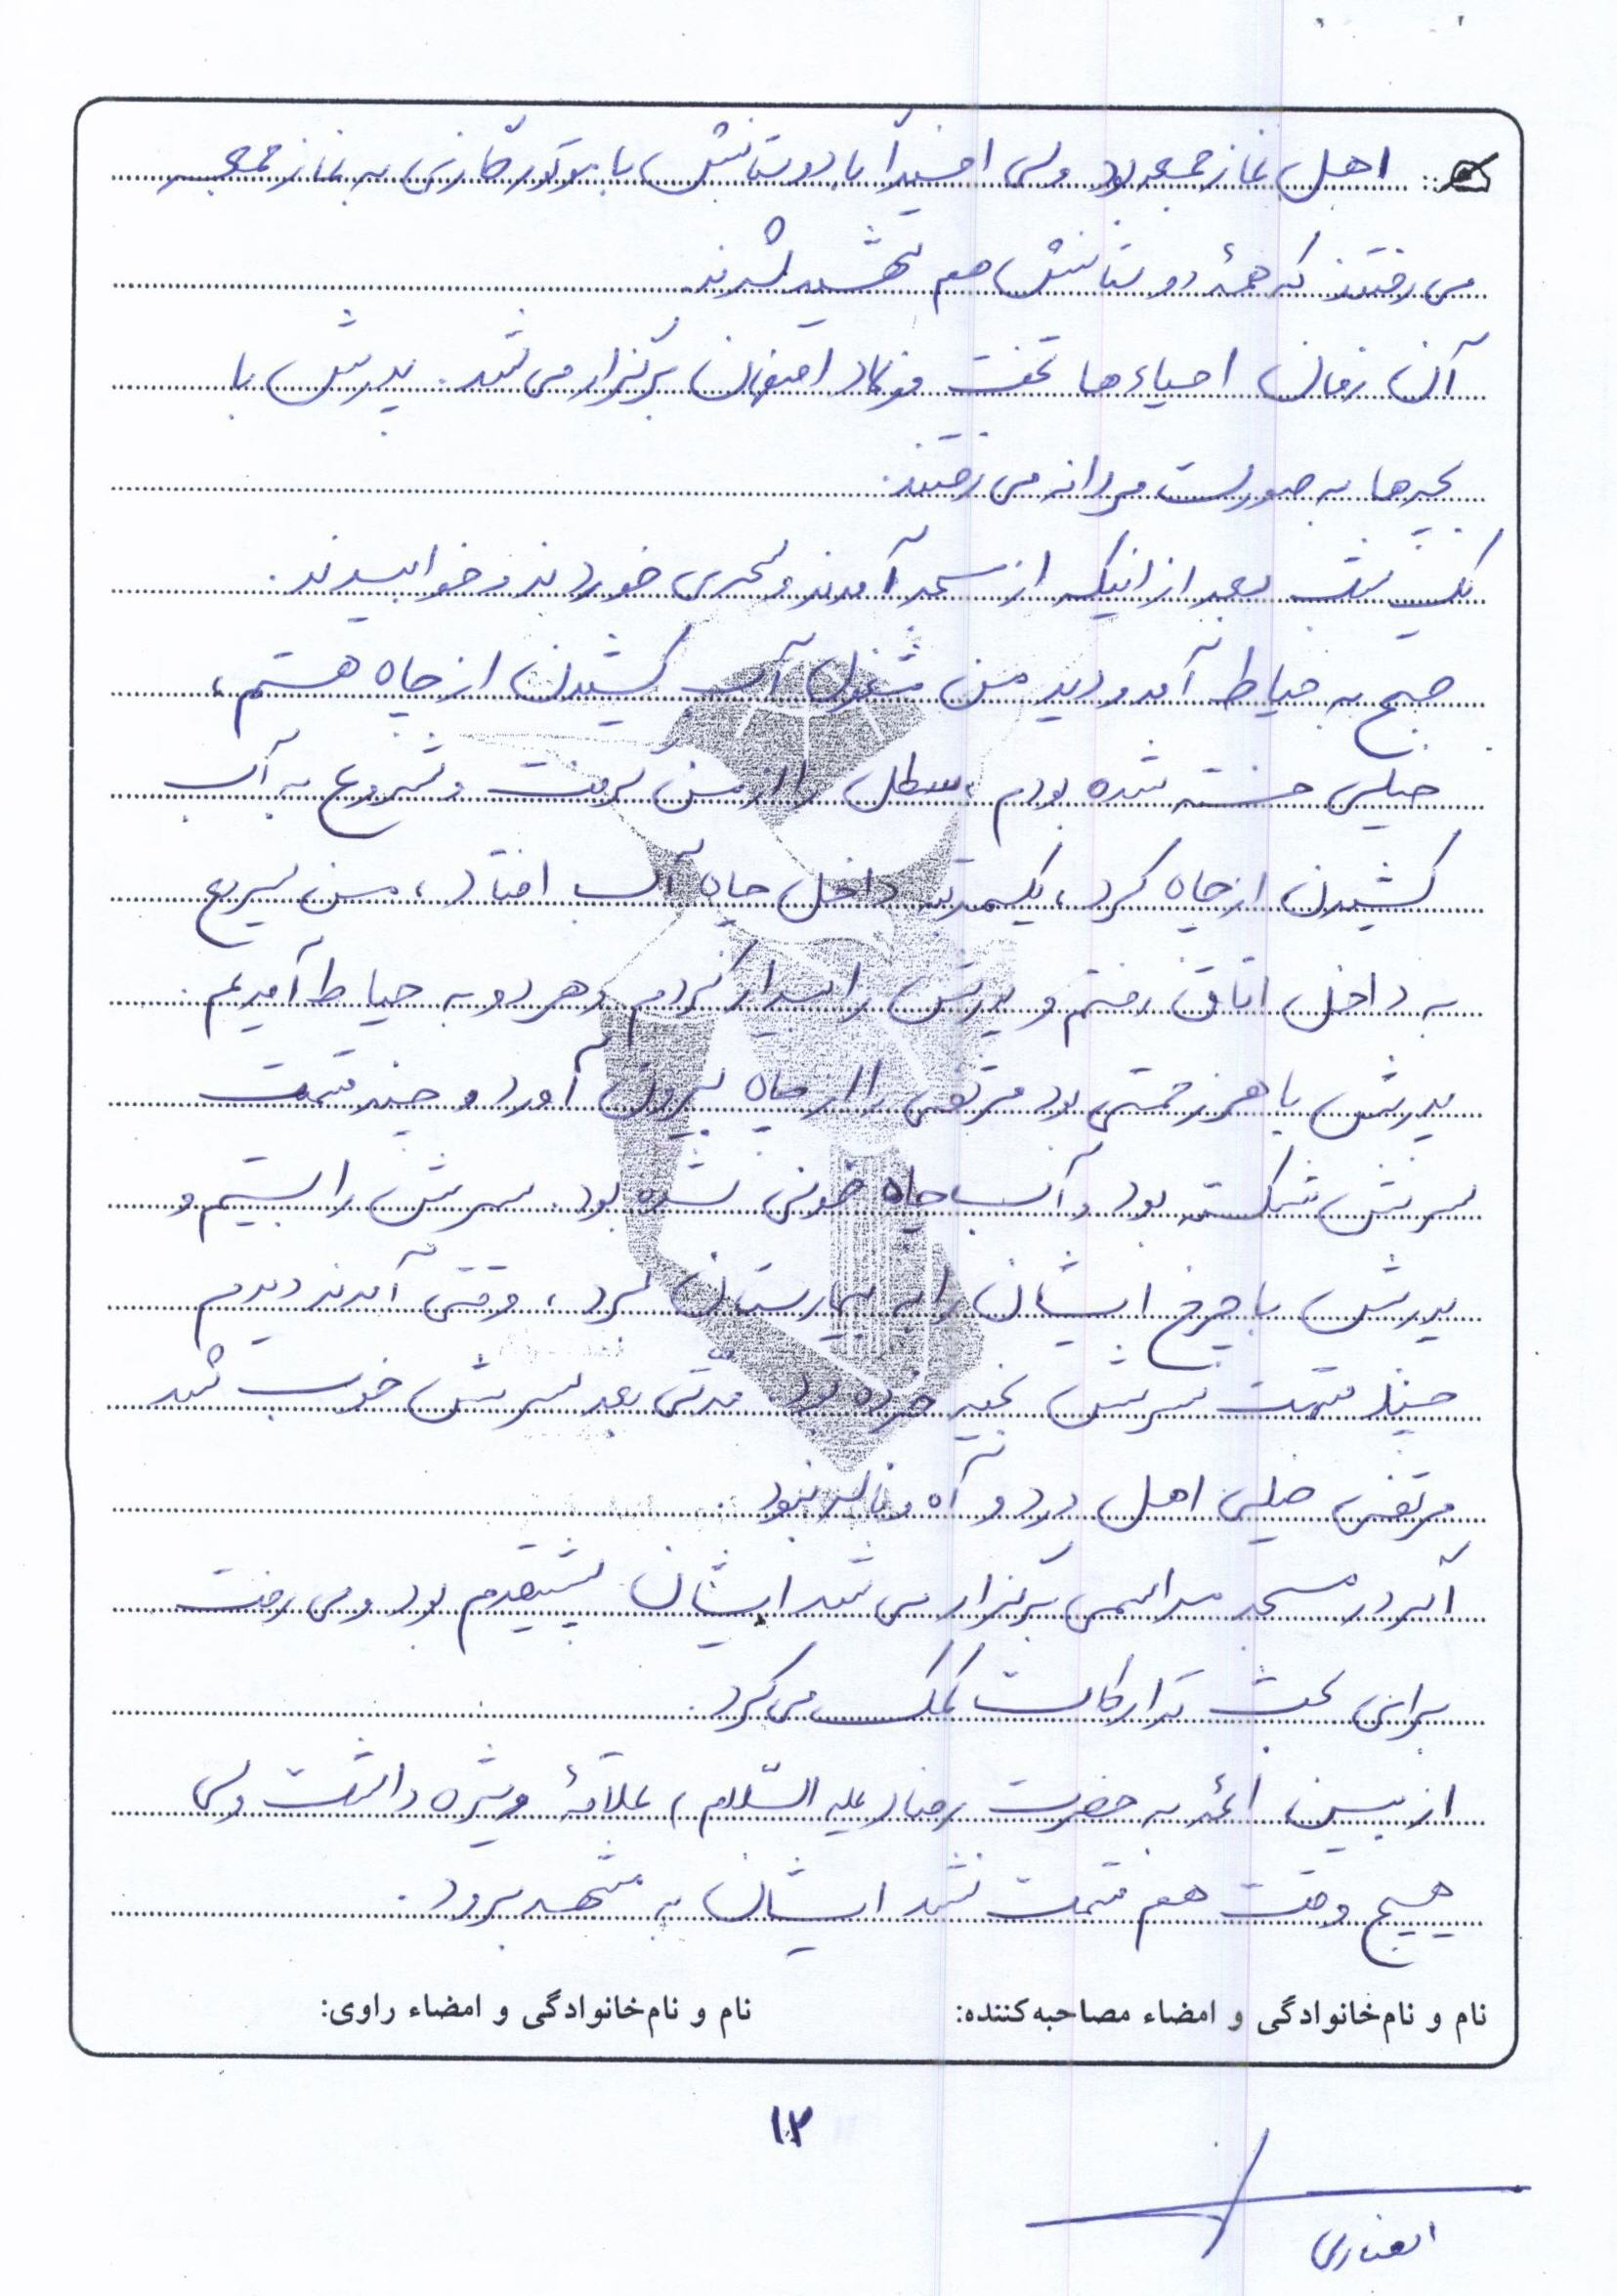 اهل نماز جمعه بود ولی اخیراً با دوستانش با موتور گازی به نماز جمعه
می رفتند که همهٔ دوستانش هم شهید شدند.
آن زمان احیاءها تخت فولاد اصفهان برگزار می شد. پدرش با
بچه‌ها به صورت مردانه می رفتند.
یک شب بعد از اینکه از مسجد آمدند و سحری خوردند و خوابیدند.
صبح به حیاط آمد و دید من مشغول آب کشیدن از چاه هستم،
خیلی خسته شده بودم، سطل را از من گرفت و شروع به آب
کشیدن از چاه کرد، یکمرتبه داخل چاه آب افتاد، من سریع
به داخل اتاق رفتم و پدرش را بیدار کردم و هر دو به حیاط آمدیم.
پدرش با هر زحمتی بود مرتضی را از چاه بیرون آورد و چند قسمت
سرش شکسته بود و آب چاه خونی شده بود. سرش را بستیم و
پدرش با چرخ ایشان را به بیمارستان برد، وقتی آمدند دیدم
چند قسمت سرش بخیه خورده بود مدتی بعد سرش خوب شد
مرتضی خیلی اهل درد و آه و ناله نبود.
اگر در مسجد مراسمی برگزار می شد ایشان پیشقدم بود و می رفت
برای بحث تدارکات کمک می کرد.
از بین ائمه به حضرت رضا (علیه السّلام) علاقهٔ ویژه داشت ولی
هیچ وقت هم قسمت نشد ایشان به مشهد برود.
نام و نام‌خانوادگی و امضاء مصاحبه‌کننده: نام و نام‌خانوادگی و امضاء راوی:
۱۲
انصاری